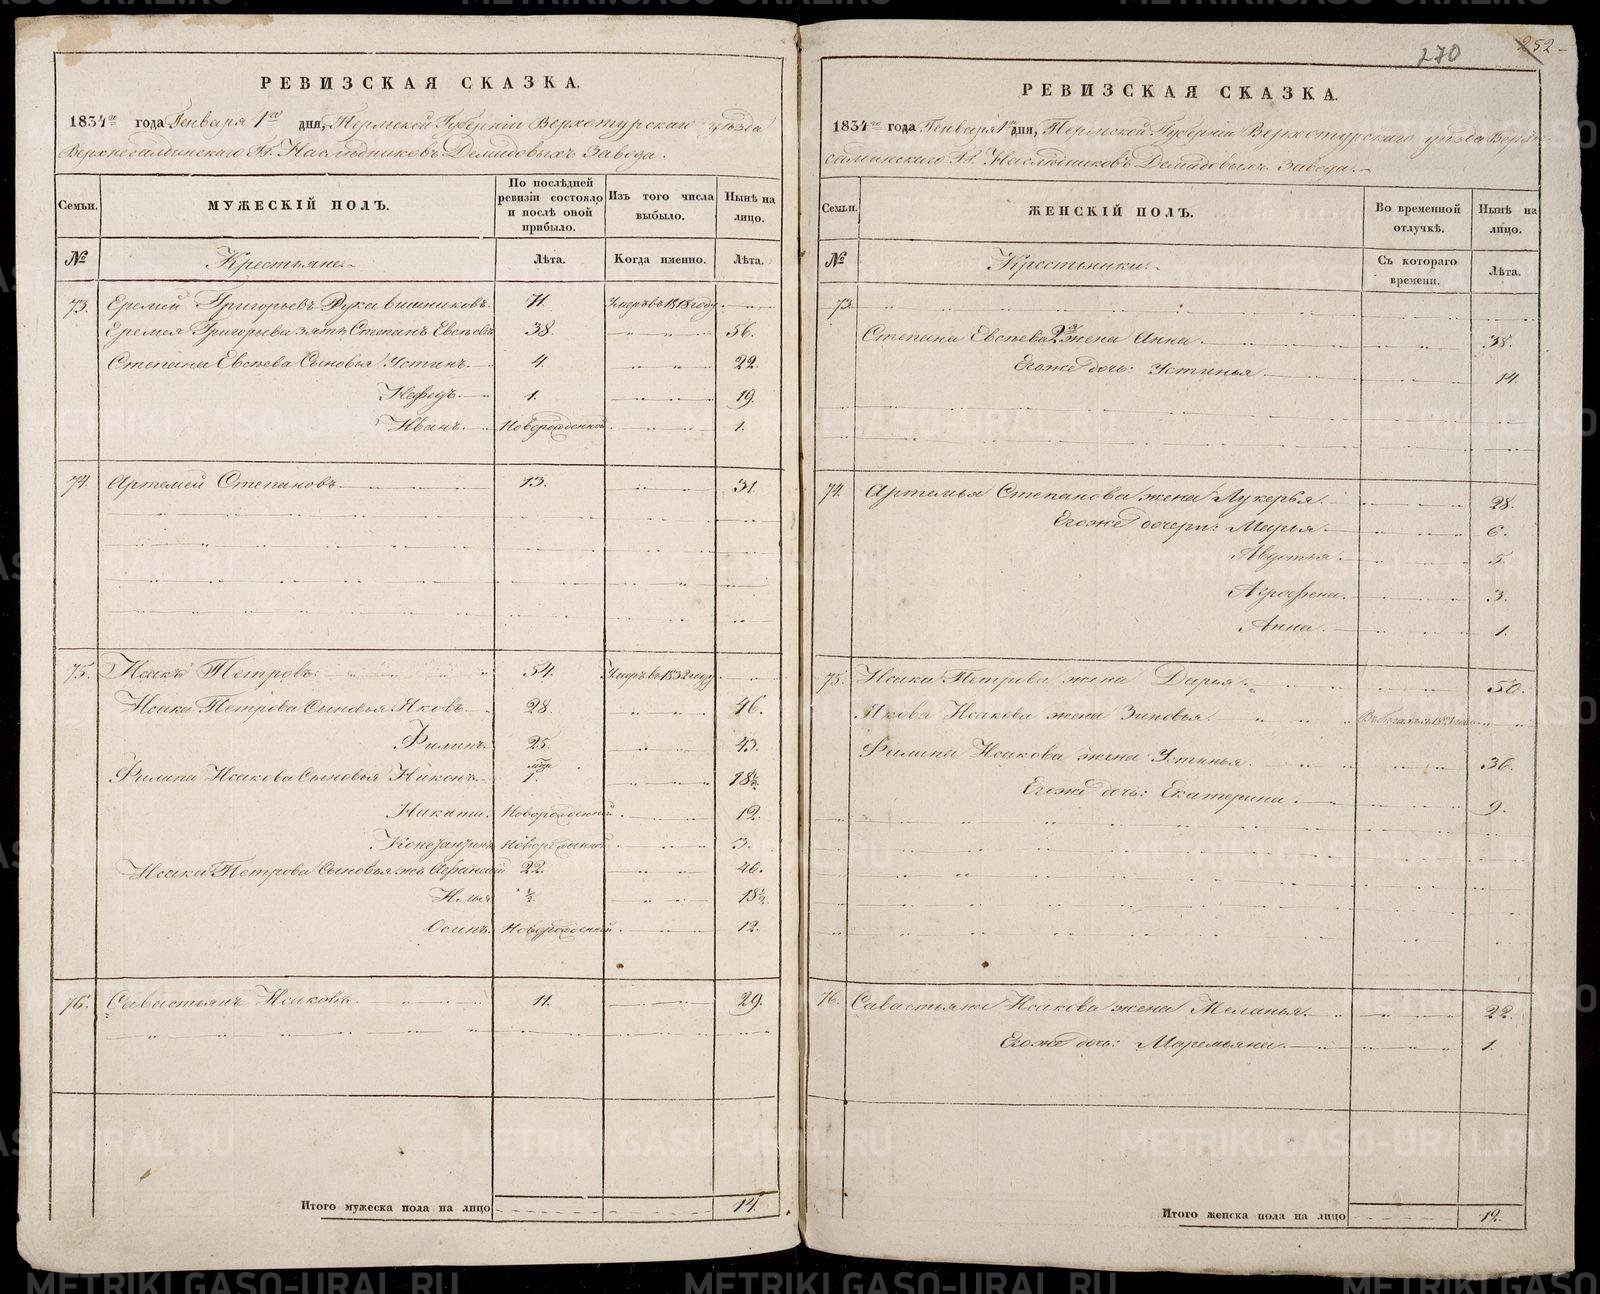 270
252
РЕВИЗСКАЯ СКАЗКА.
1834го года Генваря 1го дня, Пермской Губерніи Верхотурскаго уѣзда
Верхнесалдинскаго Гг. Наслѣдниковъ Демидовыхъ Завода.
Семьи.
МУЖЕСКІЙ ПОЛЪ.
По послѣдней ревизіи состояло и послѣ оной прибыло.
Изъ того числа выбыло.
Нынѣ на лицо.
№
Крестьяне.
Лѣта.
Когда именно.
Лѣта.
73. Еремей Григорьевъ Рукавишниковъ. 71. Умеръ въ 1818 году
Еремея Григорьева зять Степанъ Евсѣевъ 38. 56.
Степана Евсѣева Сыновья Устинъ. 4. 22.
Нефедъ. 1. 19.
Иванъ. Новорожденной 1.
74. Артемей Степановъ 13. 31.
75. Исакъ Петровъ 54. Умеръ въ 1832 году
Исака Петрова Сыновья Яковъ. 28. 46.
Филипъ. 25. 43.
Филипа Исакова Сыновья Никонъ. 1. мѣс. 18½
Никита. Новорожденной 12.
Константинъ Новорожденной 3.
Исака Петрова Сыновья жъ Афанасей 22. 40.
Илья ½ 18½
Осипъ. Новорожденной 12.
76. Савастьянъ Исаковъ. 11. 29.
Итого мужеска пола на лицо 14.
РЕВИЗСКАЯ СКАЗКА.
1834го года Генваря 1го дня, Пермской Губерніи Верхотурскаго уѣзда Верхне-
салдинскаго Гг. Наслѣдниковъ Демидовыхъ Завода.
Семьи.
ЖЕНСКІЙ ПОЛЪ.
Во временной отлучкѣ.
Нынѣ на лицо.
№
Крестьянки.
Съ котораго времени.
Лѣта.
73.
Степана Евсѣева 2я жена Анна. 38.
Егоже дочь: Устинья. 14.
74. Артемья Степанова жена Лукерья. 28.
Егоже дочери: Марья. 6.
Авдотья. 5.
Агрофена. 3.
Анна. 1.
75. Исака Петрова жена Дарья. 50.
Якова Исакова жена Зиновья.
Филипа Исакова жена Устинья. 36.
Егоже дочь: Екатерина. 9.
76. Савастьяна Исакова жена Меланья. 22.
Егоже дочь: Маремьяна. 1.
Итого женска пола на лицо 12.
METRIKI.GASO-URAL.RU